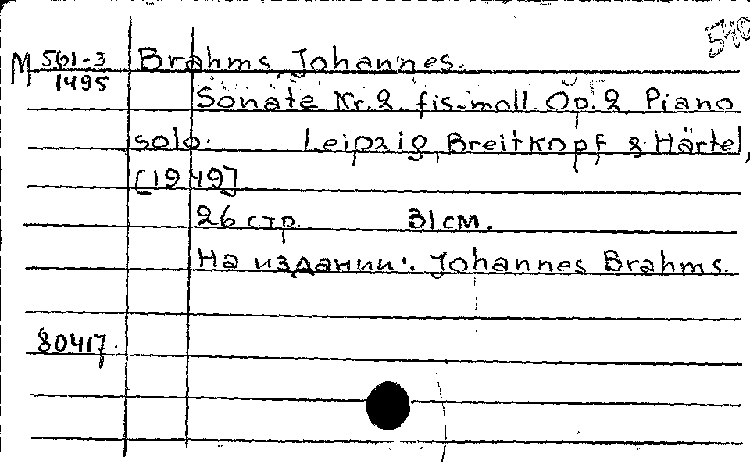 540
М 561-3 Brahms, Johannes.
1495
Sonate Nr. 2 fis-moll. Op. 2. Piano
solo. Leipzig, Breitkopf & Härtel,
[1949]
26 стр. 31 см.
На издании: Johannes Brahms.
80417.